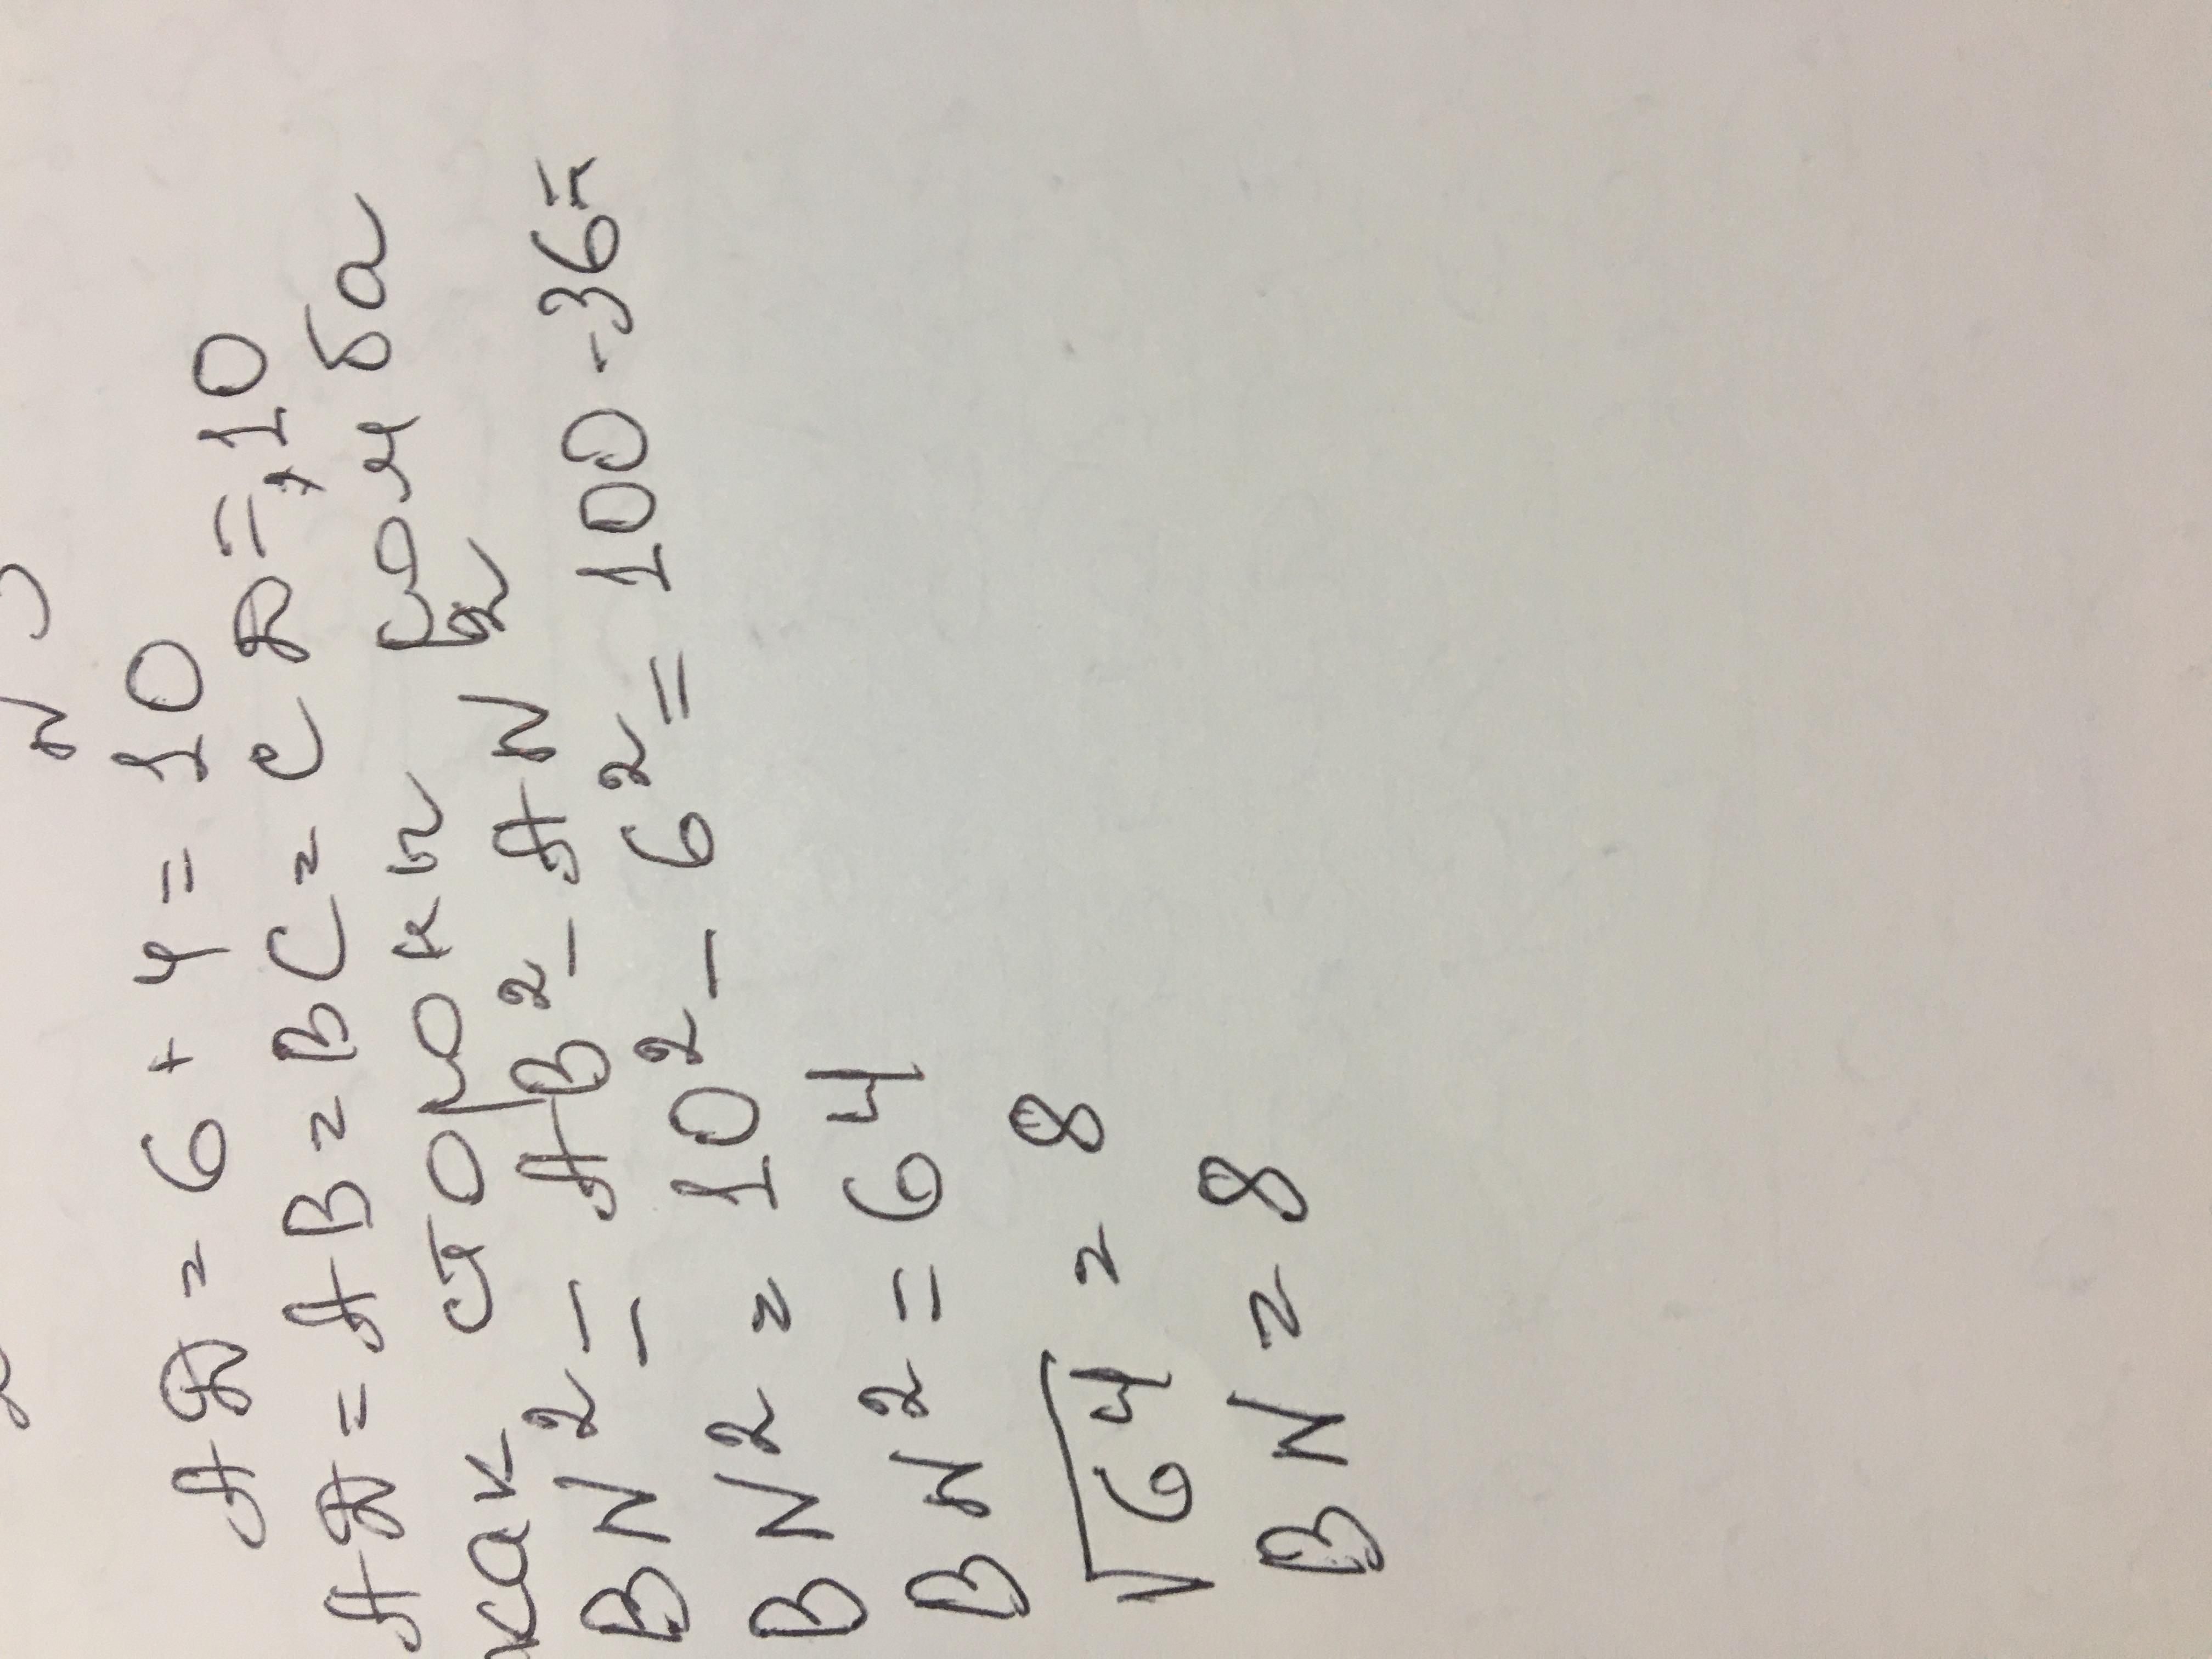 АД = 6 + 4 = 10
АД = АВ = ВС = СД = 10,
как стороны ромба
BN² = АВ² - AN²
BN² = 10² - 6² = 100 - 36 =
BN² = 64
√64 = 8
BN = 8